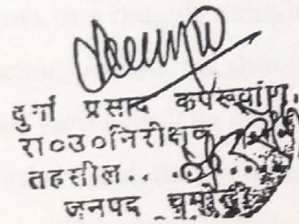 दुर्गा प्रसाद कपरूवांण
रा०उ०निरीक्षक
तहसील..
जनपद चमोली